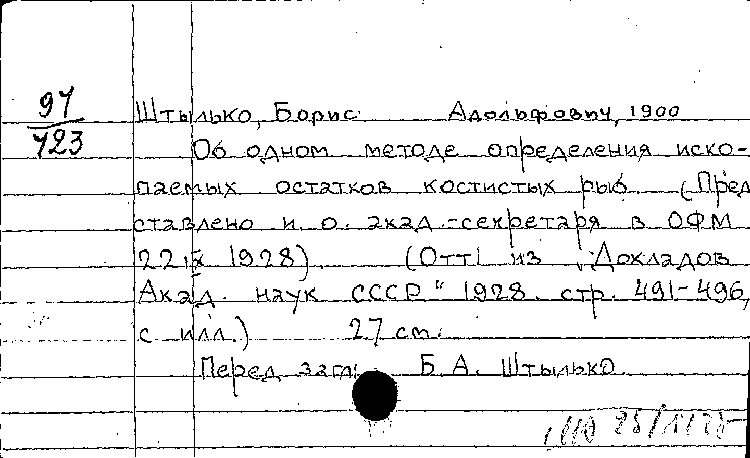 97
723
Штылько, Борис Адольфович, 1900
Об одном методе определения иско-
паемых остатков костистых рыб (Пред
ставлено и. о. акад.-секретаря в ОФМ
22 IX 1928) (Отт. из „Докладов
Акад. наук СССР" 1928. стр. 491-496,
с илл.) 27 см.
Перед загл: Б. А. Штылько